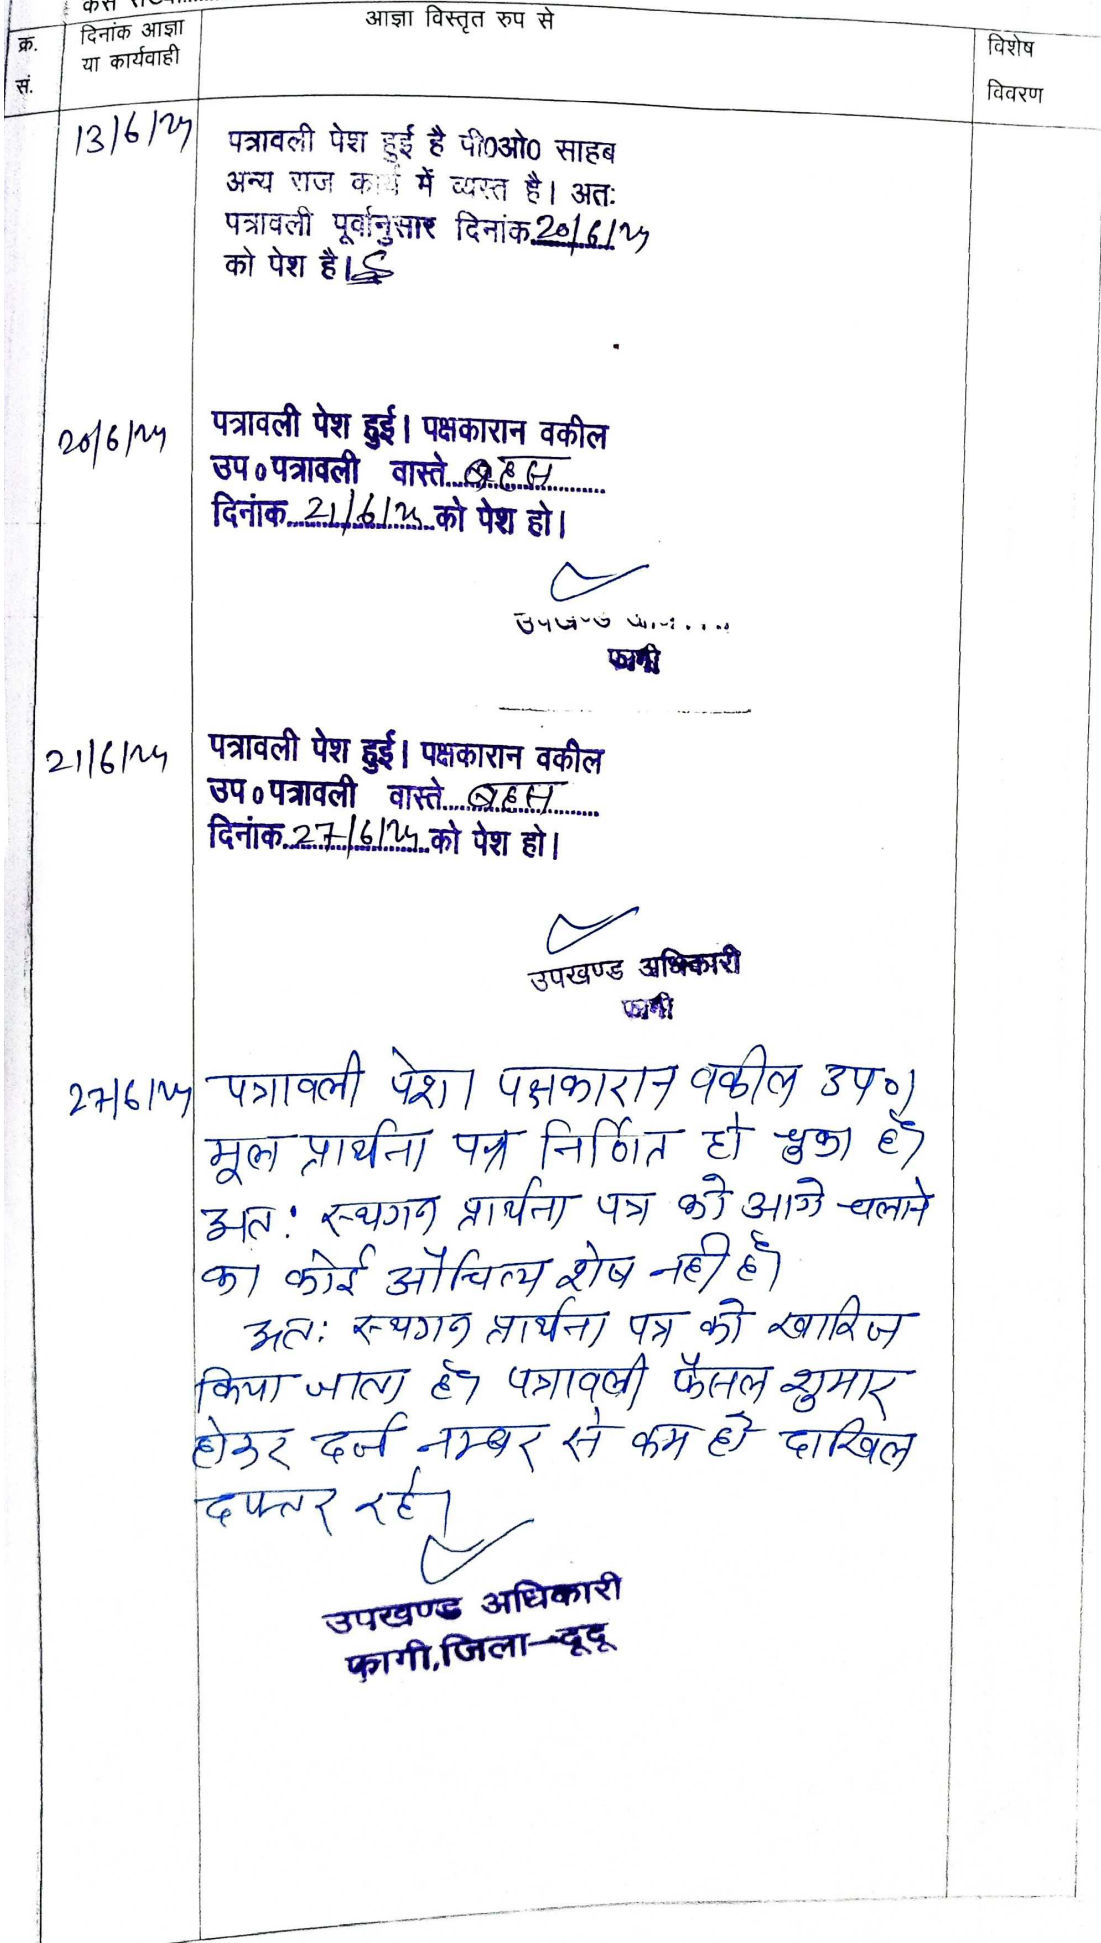 क्र.
सं.
दिनांक आज्ञा
या कार्यवाही
आज्ञा विस्तृत रुप से
विशेष
विवरण
13/6/24
पत्रावली पेश हुई है पी0ओ0 साहब
अन्य राज कार्य में व्यस्त है। अतः
पत्रावली पूर्वानुसार दिनांक 20/6/24
को पेश है।
20/6/24
पत्रावली पेश हुई। पक्षकारान वकील
उप० पत्रावली वास्ते बहस
दिनांक 21/6/24 को पेश हो।
फागी
21/6/24
पत्रावली पेश हुई। पक्षकारान वकील
उप० पत्रावली वास्ते बहस
दिनांक 27/6/24 को पेश हो।
उपखण्ड अधिकारी
फागी
27/6/24 पत्रावली पेश। पक्षकारान वकील उप०।
मूल प्रार्थना पत्र निर्णित हो चुका है।
अतः स्थगन प्रार्थना पत्र को आगे चलाने
का कोई औचित्य शेष नही है।
अतः स्थगन प्रार्थना पत्र को खारिज
किया जाता है। पत्रावली फैसल शुमार
होकर दर्ज नम्बर से कम हो दाखिल
दफ्तर रहे।
उपखण्ड अधिकारी
फागी, जिला-दूदू